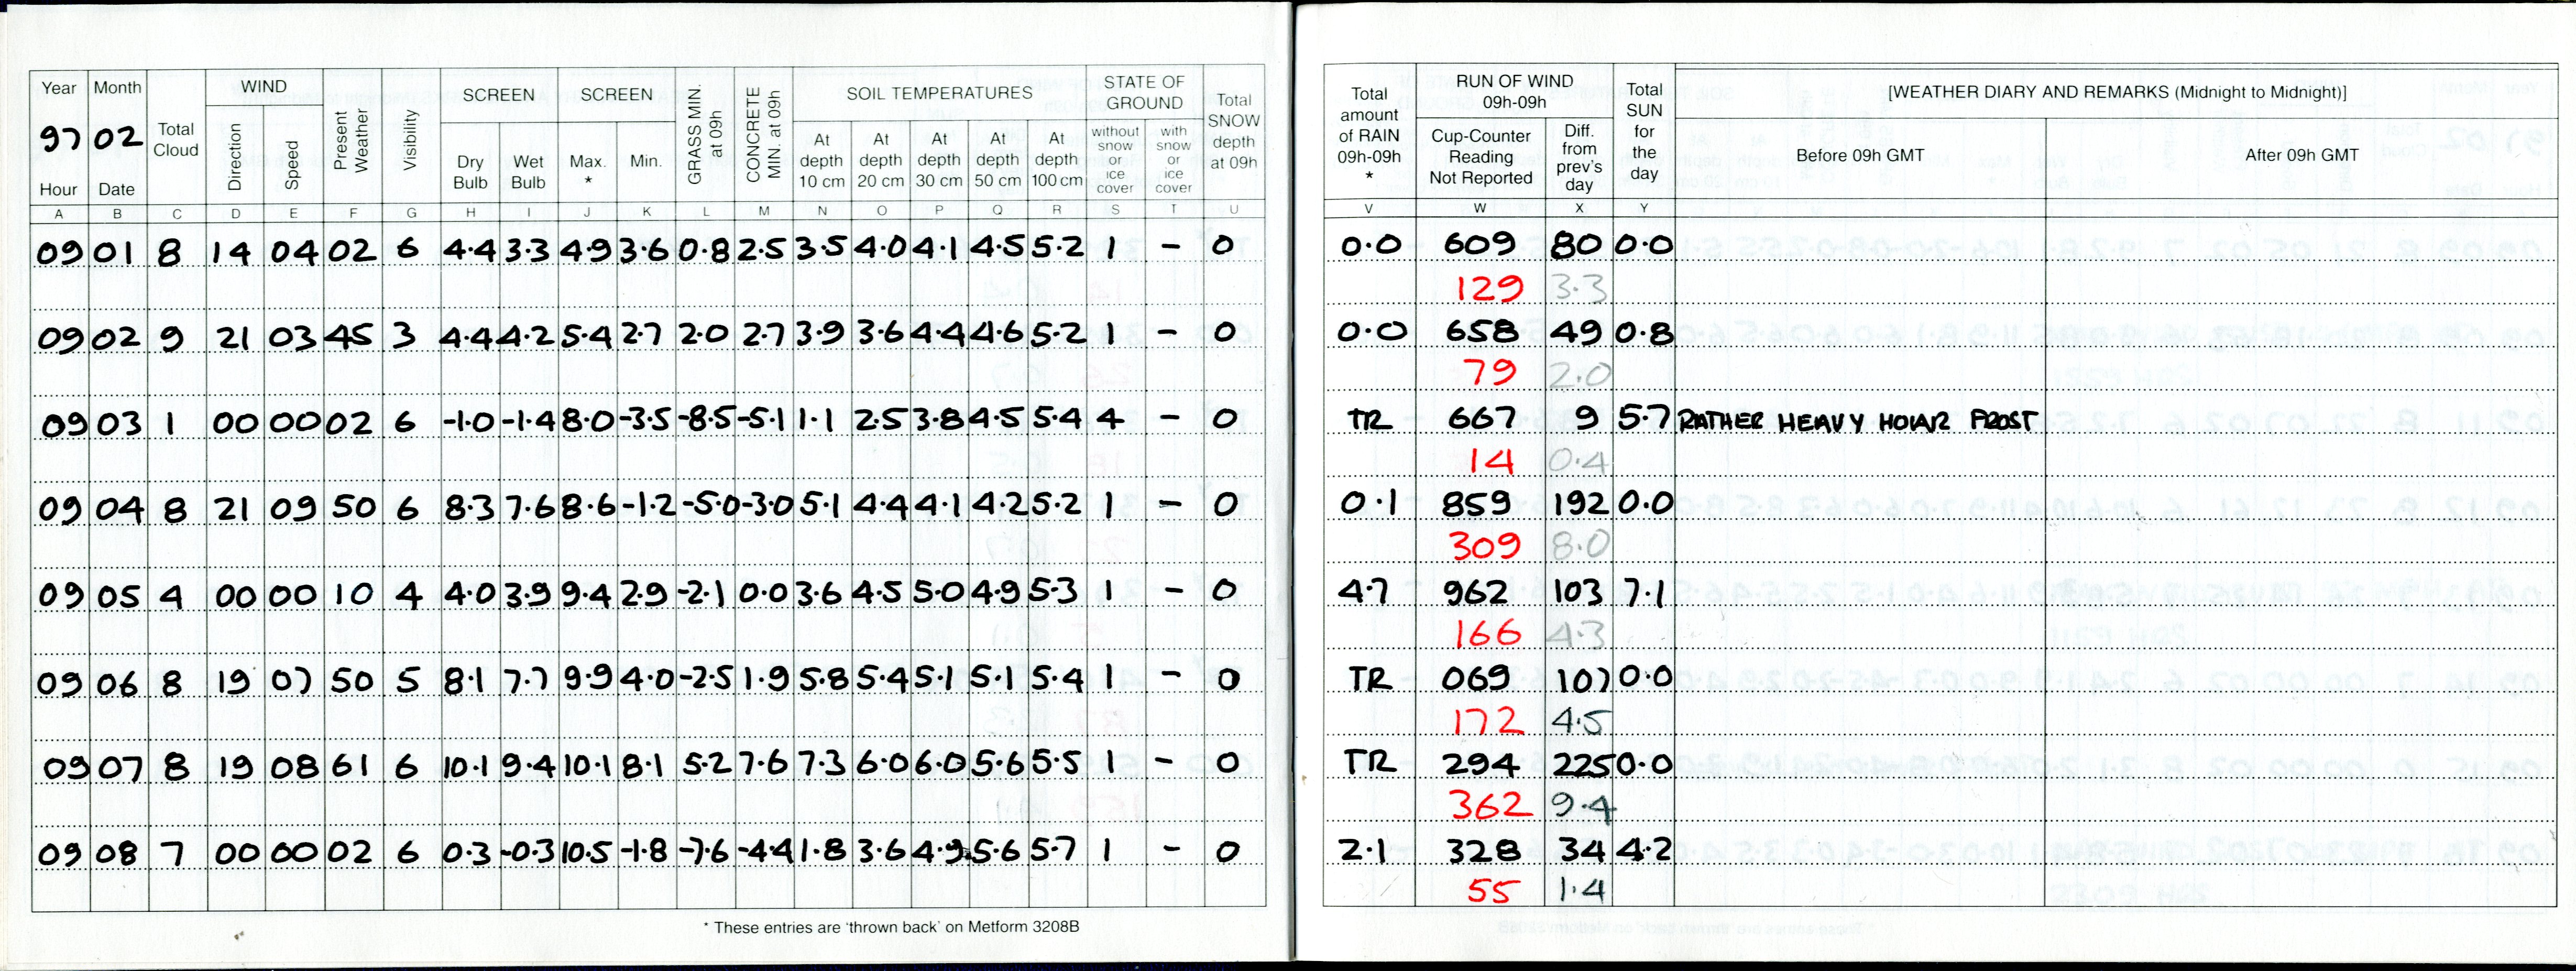 Year Month Total Cloud WIND Present Weather Visibility SCREEN SCREEN GRASS MIN. at 09h CONCRETE MIN. at 09h SOIL TEMPERATURES STATE OF GROUND Total SNOW depth at 09h
97 02 Direction Speed Dry Bulb Wet Bulb Max. * Min. At depth 10 cm At depth 20 cm At depth 30 cm At depth 50 cm At depth 100 cm without snow or ice cover with snow or ice cover
Hour Date
A B C D E F G H I J K L M N O P Q R S T U
09 01 8 14 04 02 6 4.4 3.3 4.9 3.6 0.8 2.5 3.5 4.0 4.1 4.5 5.2 1 - 0
09 02 9 21 03 45 3 4.4 4.2 5.4 2.7 2.0 2.7 3.9 3.6 4.4 4.6 5.2 1 - 0
09 03 1 00 00 02 6 -1.0 -1.4 8.0 -3.5 -8.5 -5.1 1.1 2.5 3.8 4.5 5.4 4 - 0
09 04 8 21 09 50 6 8.3 7.6 8.6 -1.2 -5.0 -3.0 5.1 4.4 4.1 4.2 5.2 1 - 0
09 05 4 00 00 10 4 4.0 3.9 9.4 2.9 -2.1 0.0 3.6 4.5 5.0 4.9 5.3 1 - 0
09 06 8 19 07 50 5 8.1 7.7 9.9 4.0 -2.5 1.9 5.8 5.4 5.1 5.1 5.4 1 - 0
09 07 8 19 08 61 6 10.1 9.4 10.1 8.1 5.2 7.6 7.3 6.0 6.0 5.6 5.5 1 - 0
09 08 7 00 00 02 6 0.3 -0.3 10.5 -1.8 -7.6 -4.4 1.8 3.6 4.9 5.6 5.7 1 - 0
* These entries are 'thrown back' on Metform 3208B
Total amount of RAIN 09h-09h * RUN OF WIND 09h-09h Total SUN for the day [WEATHER DIARY AND REMARKS (Midnight to Midnight)]
Cup-Counter Reading Not Reported Diff. from prev's day Before 09h GMT After 09h GMT
V W X Y
0.0 609 80 0.0
129 3.3
0.0 658 49 0.8
79 2.0
TR 667 9 5.7 RATHER HEAVY HOAR FROST
14 0.4
0.1 859 192 0.0
309 8.0
4.7 962 103 7.1
166 4.3
TR 069 107 0.0
172 4.5
TR 294 225 0.0
362 9.4
2.1 328 34 4.2
55 1.4